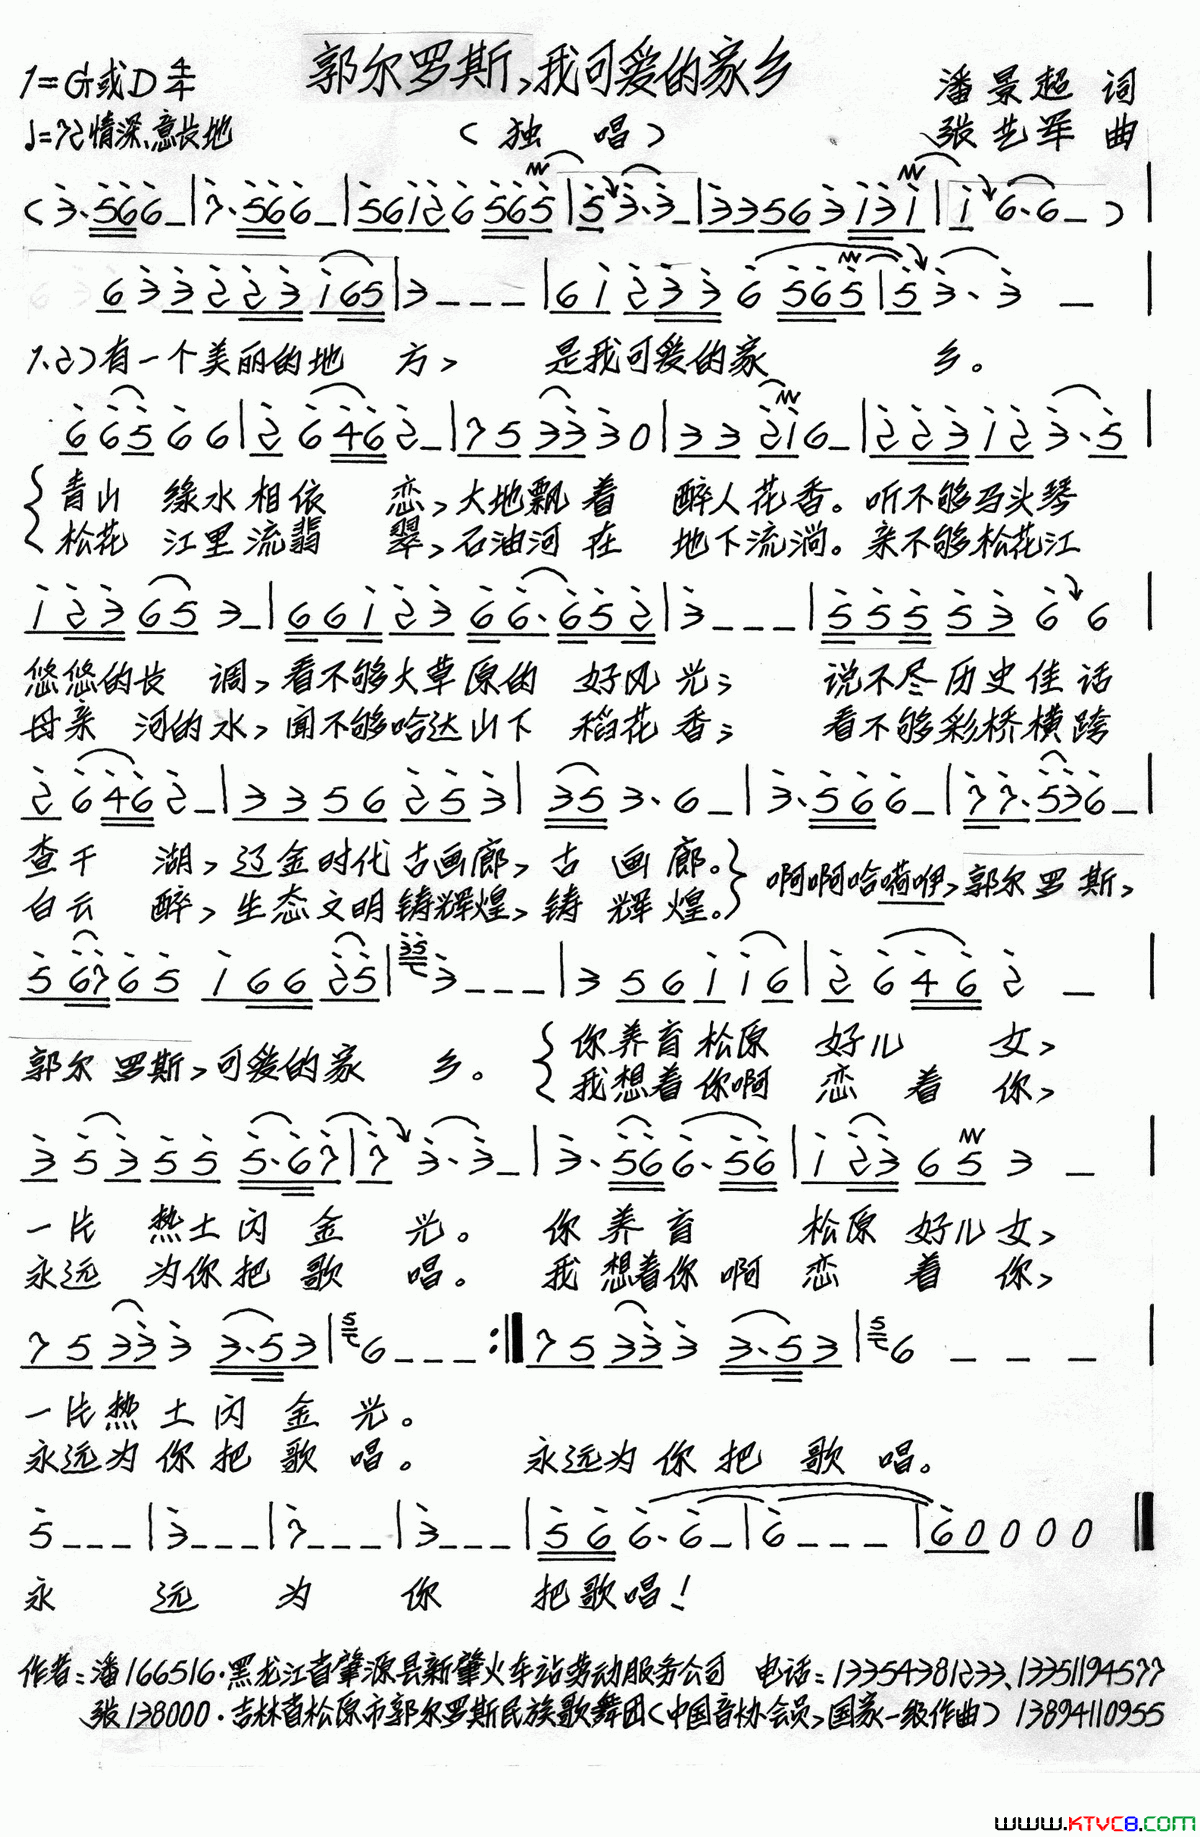 郭尔罗斯,我可爱的家乡
1=G或D 4/4
潘景超 词
♩=72 情深、意长地
(独 唱)
张艺军 曲
(3·566-|7·566-|56126565|53·3-|33563131|16·6-)|
633223165|3---|612336565|53·3-|
1.2)有一个美丽的地 方, 是我可爱的家 乡。
66566|26462-|7533330|33216-|2231233·5|
青山 缘水相依 恋,大地飘着 醉人花香。听不够马头琴
松花 江里流翡 翠,石油河在 地下流淌。亲不够松花江
123653-|6612366·652|3---|5555366|
悠悠的长 调,看不够大草原的 好风光; 说不尽历史佳话
母亲 河的水,闻不够哈达山下 稻花香; 看不够彩桥横跨
26462-|3356253|353·6-|3·566-|77·536-|
查干 湖,辽金时代古画廊,古画廊。
啊啊哈嗬咿,郭尔罗斯,
白云 醉,生态文明铸辉煌,铸辉煌。
5676516625|353---|356116|26462-|
你养育松原 好儿 女,
郭尔罗斯,可爱的家 乡。
我想着你啊 恋着你,
353555·67|73·3-|3·566·56|123653-|
一片 热土闪金 光。 你养育 松原好儿女,
永远 为你把歌 唱。 我想着你啊 恋着你,
753333·53|576---:‖753333·53|576---|
一片热土闪金光。
永远为你把歌唱。 永远为你把歌唱。
5---|3---|7---|3---|566·6-|6---|60000‖
永 远 为 你 把歌唱!
作者:潘166516·黑龙江省肇源县新肇火车站劳动服务公司 电话:13354381233、13351194577
张138000·吉林省松原市郭尔罗斯民族歌舞团(中国音协会员,国家一级作曲) 13894110955
www.KTVC8.COM